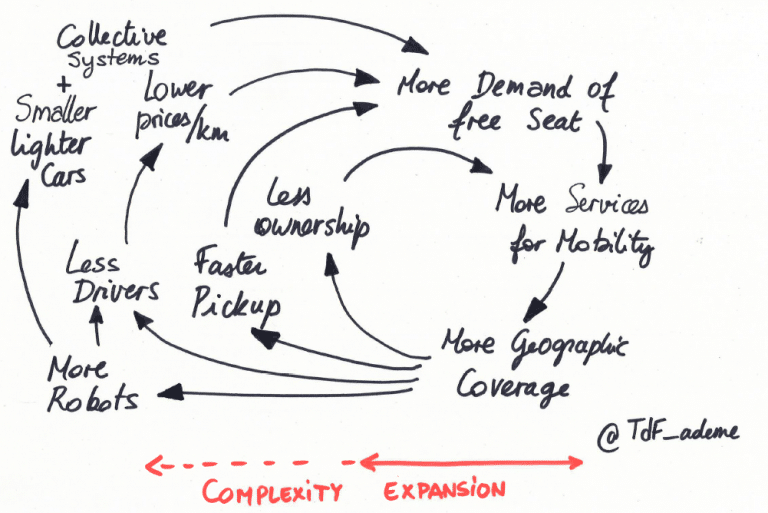 Collective
Systems
+
Smaller
lighter
Cars
Lower
prices/km
More Demand of
free Seat
Less
ownership
More Services
for Mobility
Less
Drivers
Faster
Pickup
More Geographic
Coverage
More
Robots
@TdF_ademe
COMPLEXITY EXPANSION